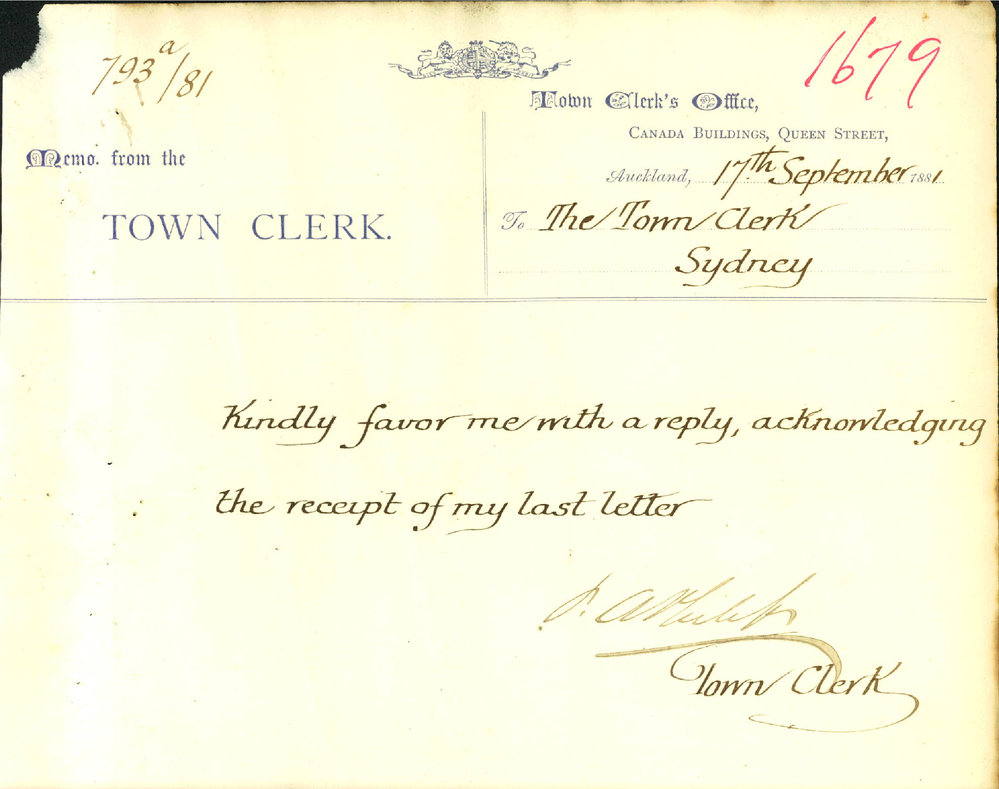 793a/81
1679
Town Clerk's Office,
Canada Buildings, Queen Street,
Memo. from the
Auckland, 17th September 1881
TOWN CLERK.
To The Town Clerk
Sydney
Kindly favor me with a reply, acknowledging
the receipt of my last letter
P. A. Philips
Town Clerk